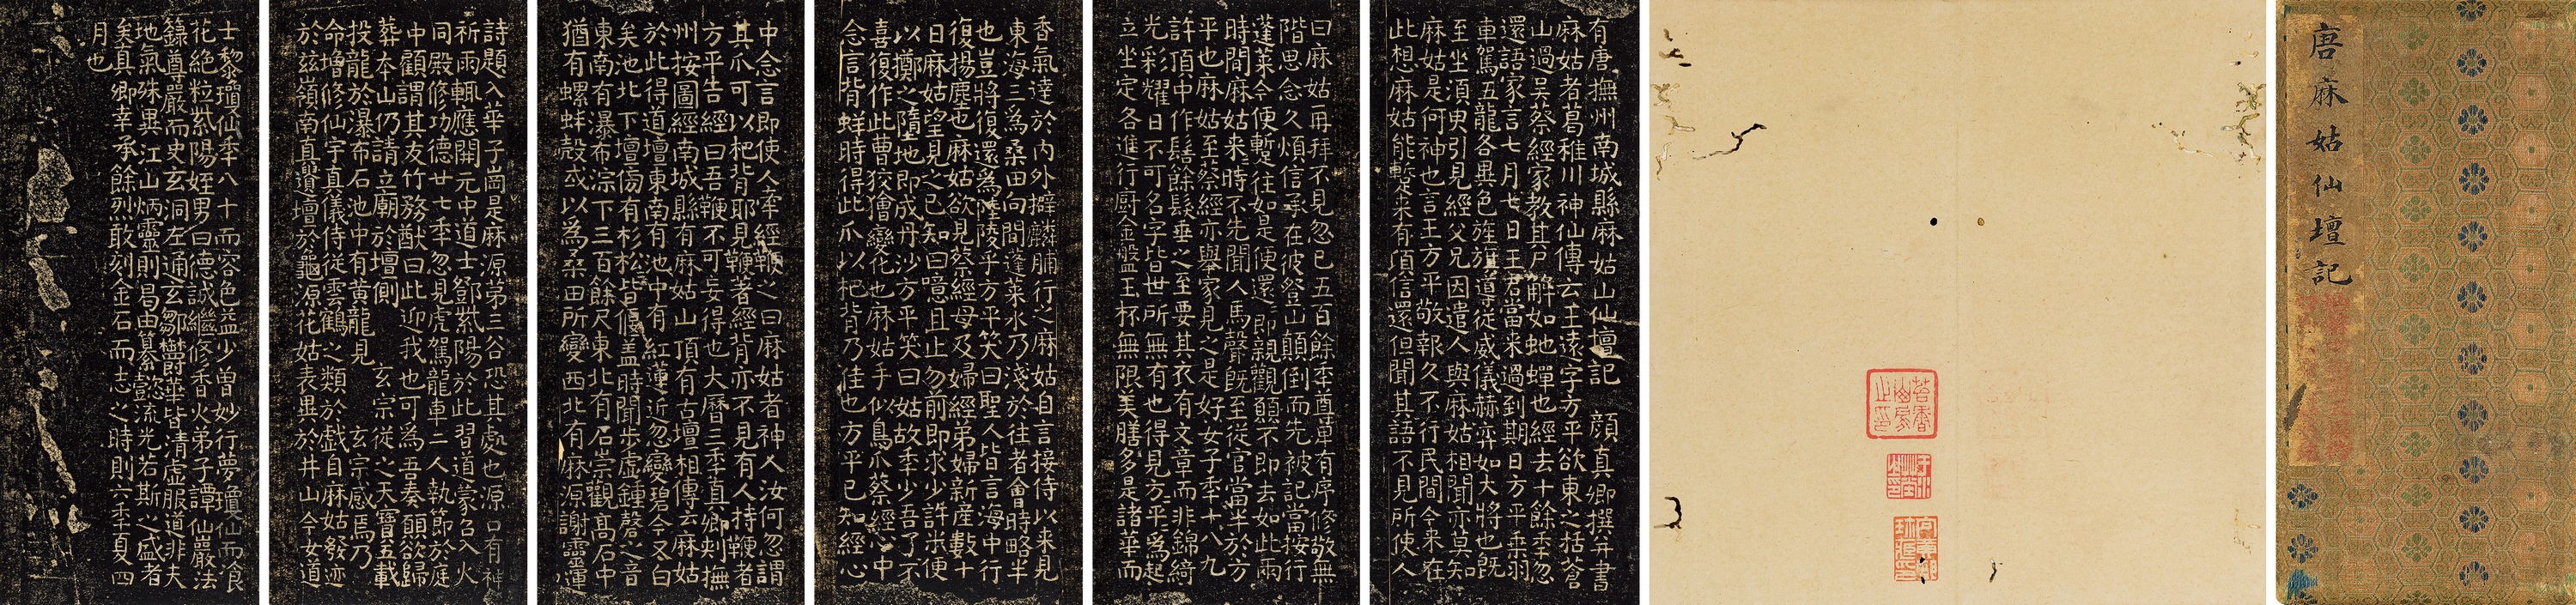 唐麻姑仙壇記
有唐撫州南城縣麻姑山仙壇記 顏真卿撰并書
麻姑者葛稚川神仙傳云王遠字方平欲東之括蒼
山過吳蔡經家教其尸解如虵蟬也經去十餘年忽
還語家言七月七日王君當来過到期日方平乘羽
車駕五龍各異色旌旗導從威儀赫弈如大將也既
至坐須臾引見經父兄因遣人與麻姑相聞亦莫知
麻姑是何神也言王方平敬報久不行民間今来在
此想麻姑能蹔来有頃信還但聞其語不見所使人
曰麻姑再拜不見忽已五百餘年尊卑有序修敬無
階思念久煩信承在彼登山顛倒而先被記當按行
蓬萊今便蹔往如是便還還即親觀願不即去如此兩
時間麻姑来時不先聞人馬聲既至從官當半於方
平也麻姑至蔡經亦舉家見之是好女子年十八九
許頂中作髻餘髮垂之至要其衣有文章而非錦綺
光彩耀日不可名字皆世所無有也得見方平為起
立坐定各進行厨金盤玉杯無限美膳多是諸華而
香氣達於內外擗麟脯行之麻姑自言接待以来見
東海三為桑田向間蓬萊水乃淺於往者會時略半
也豈將復還為陸陵乎方平笑曰聖人皆言海中行
復揚塵也麻姑欲見蔡經母及婦經弟婦新產數十
日麻姑望見之已知曰噫且止勿前即求少許米便
以擲之墮地即成丹沙方平笑曰姑故年少吾了不
喜復作此曹狡獪變化也麻姑手似鳥爪蔡經心中
念言背蛘時得此爪以杷背乃佳也方平已知經心
中念言即使人牽經鞭之曰麻姑者神人汝何忽謂
其爪可以杷背耶見鞭著經背亦不見有人持鞭者
方平告經曰吾鞭不可妄得也大曆三年真卿刺撫
州按圖經南城縣有麻姑山頂有古壇相傳云麻姑
於此得道壇東南有池中有紅蓮近忽變碧今又白
矣池北下壇傍有杉松皆偃盖時聞步虛鍾磬之音
東南有瀑布淙下三百餘尺東北有石崇觀高石中
猶有螺蚌殼或以為桑田所變西北有麻源謝靈運
詩題入華子崗是麻源第三谷恐其處也源口有神
祈雨輒應開元中道士鄧紫陽於此習道蒙召入大
同殿修功德廿七年忽見虎駕龍車二人執節於庭
中顧謂其友竹務猷曰此迎我也可為吾奏願欲歸
葬本山仍請立廟於壇側 玄宗從之天寶五載
投龍於瀑布石池中有黃龍見 玄宗感焉乃
命增修仙宇真儀侍從雲鶴之類於戲自麻姑發迹
於茲嶺南真遺壇於龜源花姑表異於井山今女道
士黎瓊仙年八十而容色益少曾妙行夢瓊仙而飡
花絕粒紫陽姪男曰德誠繼修香火弟子譚仙巖法
籙尊嚴而史玄洞左通玄鄒鬱華皆清虛服道非夫
地氣殊異江山炳靈則曷由纂懿流光若斯之盛者
矣真卿幸承餘烈敢刻金石而志之時則六年夏四
月也